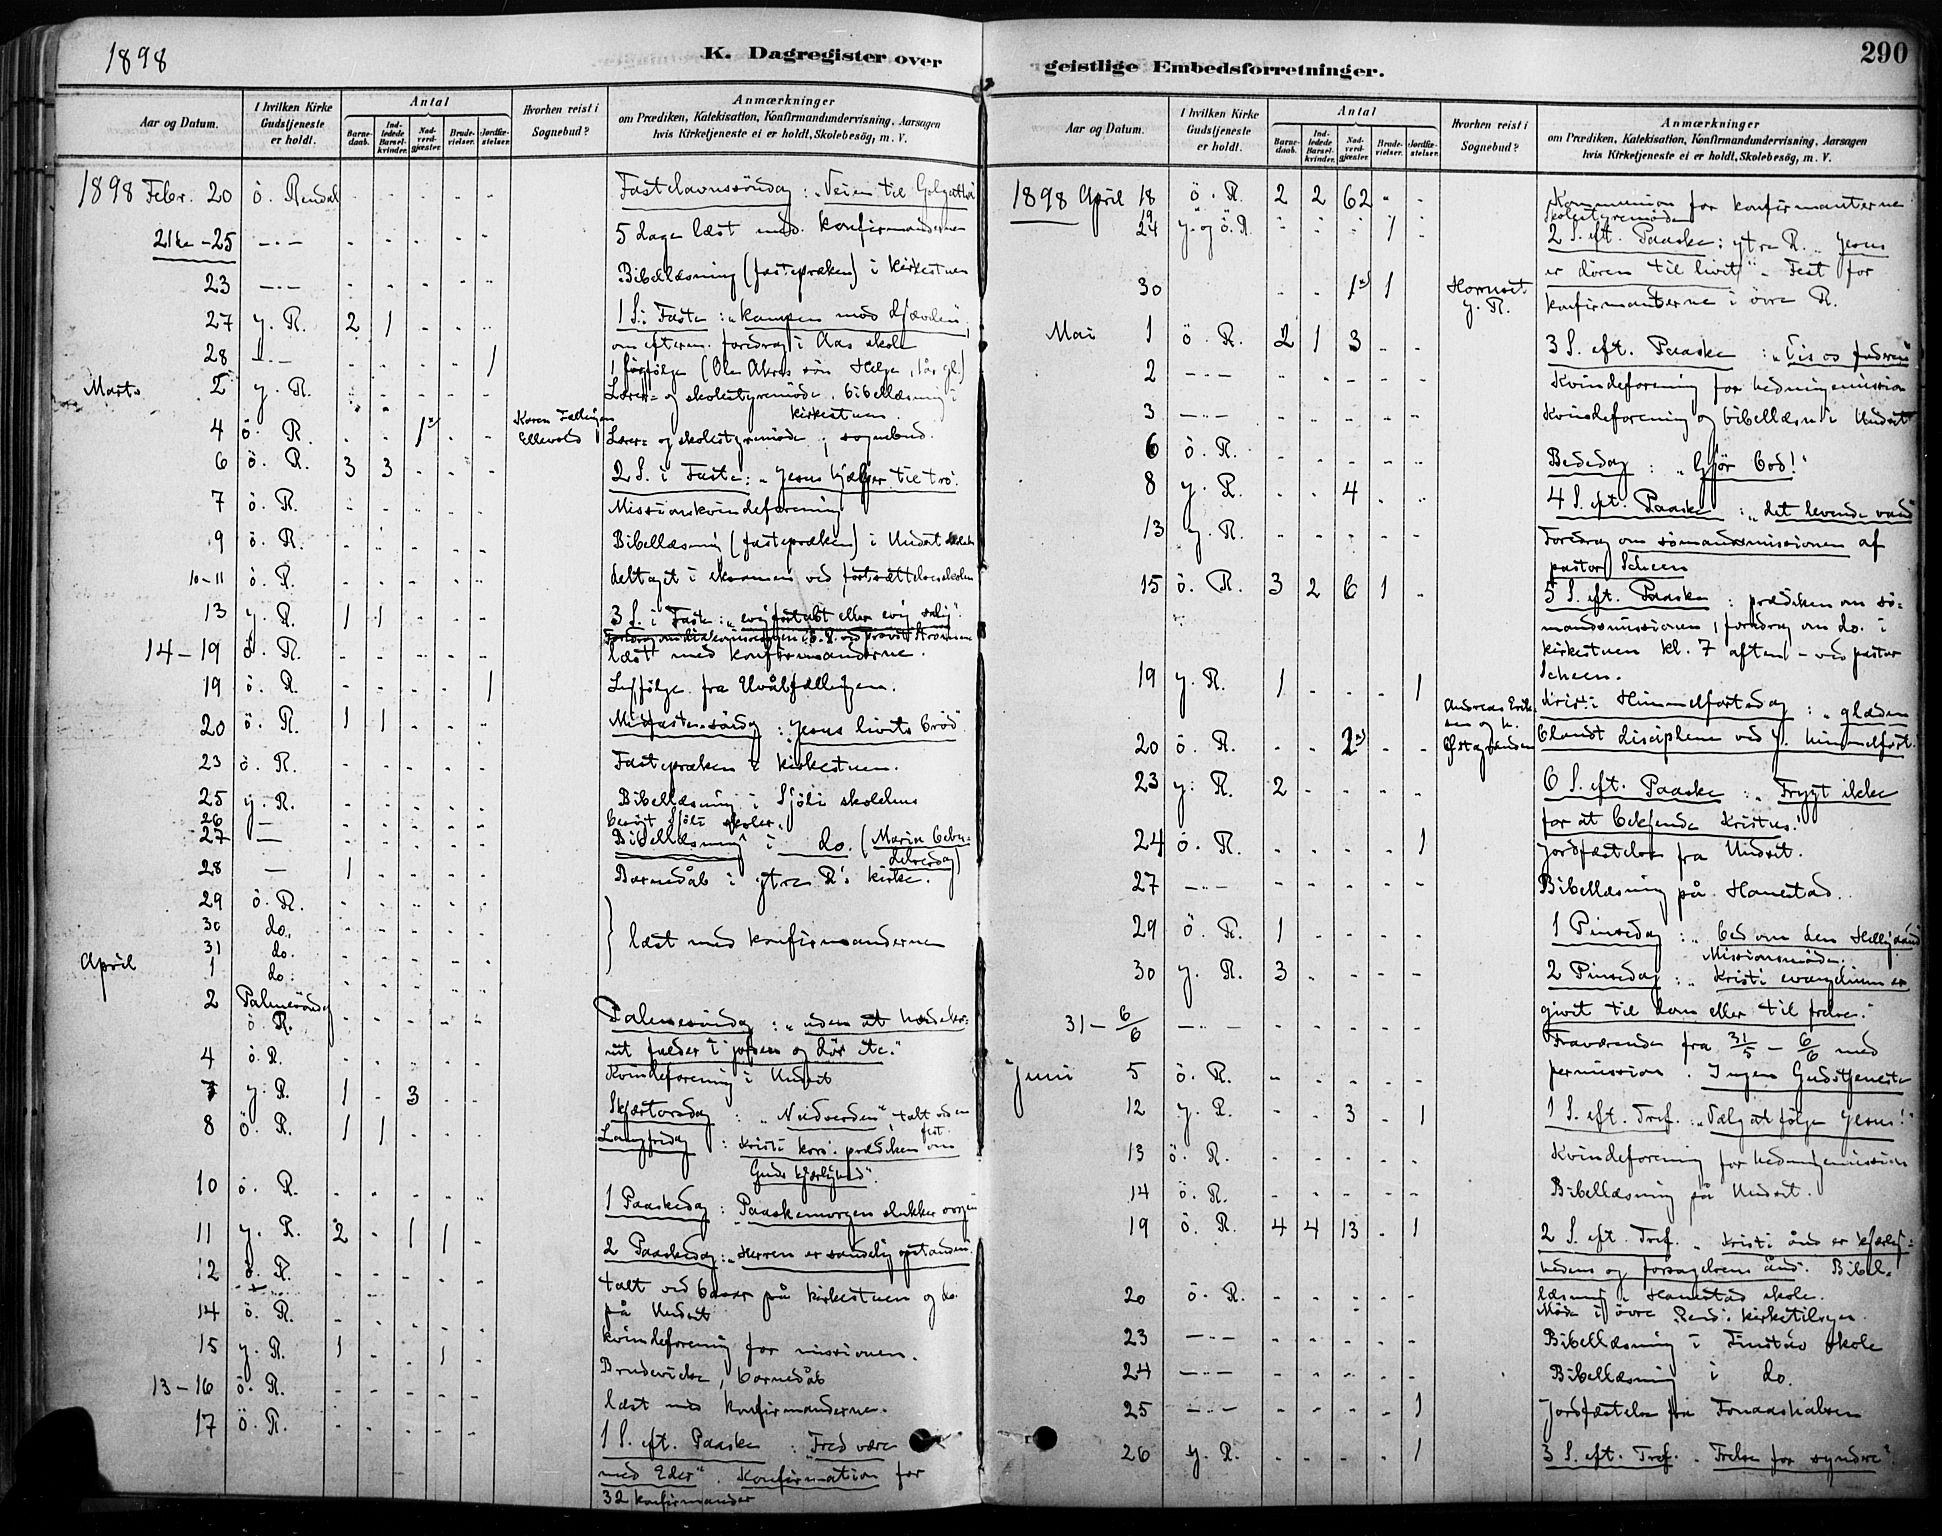 1898
K. Dagregister over
Aar og Datum.
I hvilken Kirke Gudstjeneste er holdt.
Antal
Barnedaab.
Indledede Barselkvinder.
Nadverdgjæster.
Brudevielser.
Jordfæstelser.
Hvorhen reist i Sognebud?
Anmærkninger
om Prædiken, Katekisation, Konfirmandundervisning, Aarsagen
hvis Kirketjeneste ei er holdt, Skolebesøg, m. V.
1898 Febr. 20 ö. Rendal Fastelavnssöndag: "Veien til Golgatha
21de-25 5 dage læst med konfirmanderne
23 Bibellæsning (fastepræken) i kirkestuen
27 y. R. 2 1 1 S. i Faste: "Kampen mod djævelen,
om efterm. foredrag i Aas skole
28 1
Marts 2 y. R. Lærer- og skolestyremöde. bibellæsning i
kirkestuen.
4 ö. R. 1 Ellevold Lærer- og skolestyremöde; sognebud.
6 ö. R. 3 3 2 S. i Faste: "Jesus hjælper til tro.
7 ö. R. Missionskvindeforening
9 ö. R. Bibellæsning (fastepræken) i Undset
10-11 ö. R. deltaget i eksamen ved fortsættelsesskolen
13 y. R. 1 1 3 S. i Faste: "evig fortabt eller evig salig".
14-19 ö. R. læst med konfirmanderne.
19 ö. R. 1 Ligfølge fra
20 ö. R. 1 1 Midfastesöndag: Jesus livets bröd
23 ö. R. Fastepræken i kirkestuen.
25 y. R. Bibellæsning i Sjöli skolehus
26 besögt Sjöli skoler.
27 Bibellæsning i do. (Mariæ bebudelsesdag)
28 1 Barnedåb i ytre R's kirke.
29 ö. R.
30 do.
31 do. læst med konfirmanderne
April 1 do.
2 Palmesöndag
ö. R. Palmesöndag: "uden at hvedekornet
falder i jorden og dör etc."
4 ö. R. Kvindeforening i Undset
7 y. R. 1 3 Skjærtorsdag: "Nadverden", talt
8 ö. R. 1 1 Langfredag: Kristi kors. prædiken om
Guds kjærlighed".
10 ö. R. 1 Paaskedag: Paaskemorgen slukker sorgen
11 y. R. 2 1 1 2 Paaskedag: "Herren er sandelig opstanden.
12 ö. R. talt ved basar på kirkestuen og do.
på Undset
14 ö. R. kvindeforening for missionen.
15 y. R. 1 1 Brudevielse, barnedåb
13-16 ö. R. læst med konfirmanderne.
17 ö. R. 1 S. eft. Paaske: "Fred være
med Eder". Konfirmation for
32 konfirmander
290
geistlige Embedsforretninger.
Aar og Datum.
I hvilken Kirke Gudstjeneste er holdt.
Antal
Barnedaab.
Indledede Barselkvinder.
Nadverdgjæster.
Brudevielser.
Jordfæstelser.
Hvorhen reist i Sognebud?
Anmærkninger
om Prædiken, Katekisation, Konfirmandundervisning, Aarsagen
hvis Kirketjeneste ei er holdt, Skolebesøg, m. V.
1898 April 18 ö. R. 2 2 62 Kommunion for konfirmanterne
19 Skolestyremöde
24 y. og ö. R. 1 2 S. eft. Paaske: ytre R. "Jesus
er dören til livet" - Fest for
30 1 1 Hornset y. R. konfirmanterne i övre R.
Mai 1 ö. R. 2 1 3 3 S. eft. Paaske: "Vis os faderen
2 Kvindeforening for hedningemission
3 Kvindeforening og bibellæsn. i Undset
6 ö. R. Bededag: "Gjör bod!"
8 y. R. 4 4 S. eft. Paaske: "det levende vand"
13 y. R. Foredrag om sömandsmissionen af
pastor Scheen
15 ö. R. 3 2 6 1 5 S. eft. Paaske: prædiken om sö-
mandsmissionen, foredrag om do. i
kirkestuen kl. 7 aften - ved pastor
Scheen.
19 y. R. 1 1 Kristi Himmelfartsdag: "glæden
20 ö. R. 2 blandt disciplene ved J. himmelfart.
23 y. R. 2 6 S. eft. Paaske: "Frygt ikke
for at bekjende Kristus!
24 ö. R. 1 Jordfæstelse fra Undset.
27 Bibellæsning på Hanestad.
29 ö. R. 1 1 Pinsedag: "bed om den Helligånd
Missionsmöde.
30 y. R. 3 2 Pinsedag: "Kristi evangelium er
givet til dom eller til frelse."
31-6/6 Fraværende fra 31/5 - 6/6 med
Juni 5 ö. R. permission. Ingen Gudstjeneste
12 y. R. 3 1 1 S. eft. Tref. "Vælg at følge Jesus!"
13 ö. R. Kvindeforening for hedningemission
14 ö. R. Bibellæsning på Undset.
19 ö. R. 4 4 13 1 2 S. eft. Tref. "Kristi ånd er kjærlig-
hedens og forsagelsens ånd. Bibel-
læsning i Hanestad skole.
20 ö. R. Möde i övre Rend. kirketilsyn.
23 Bibellæsning i Finstad skole
24 Bibellæsning i do.
25 1 Jordfæstelse fra
26 y. R. 1 3 S. eft. Tref. "Frelse for syndre"